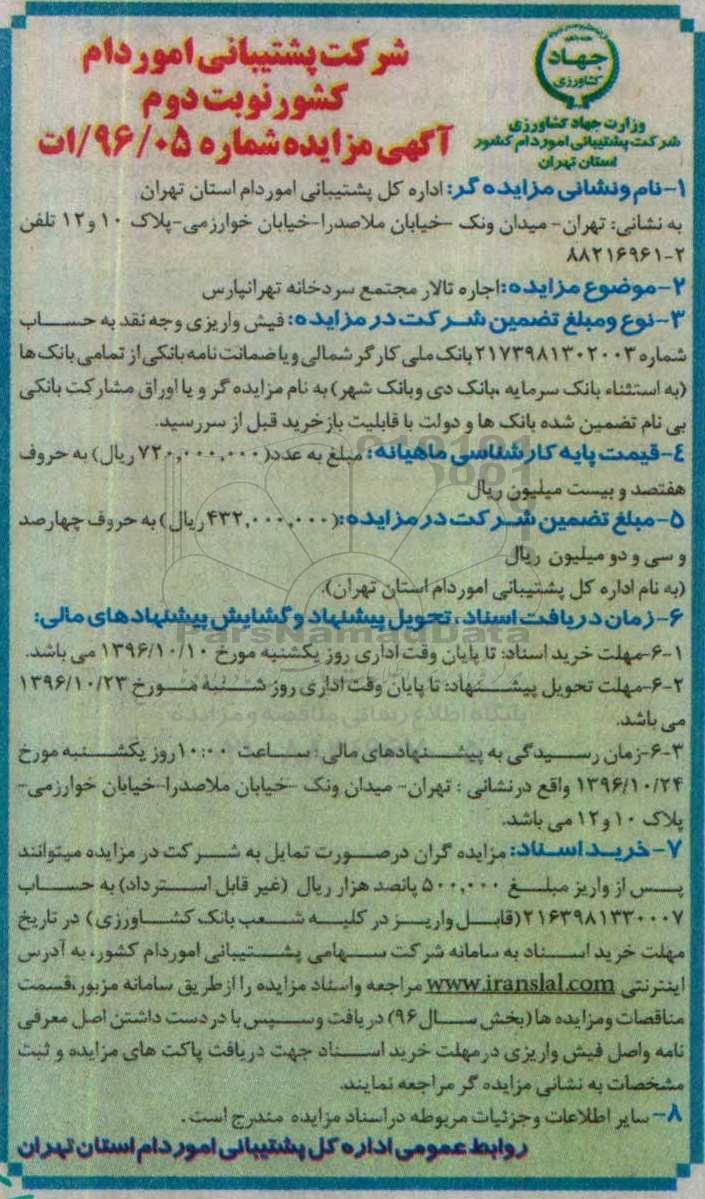 شرکت پشتیبانی امور دام
کشور نوبت دوم
آگهی مزایده شماره ۹۶/۰۵/ات
جهاد
کشاورزی
وزارت جهاد کشاورزی
شرکت پشتیبانی امور دام کشور
استان تهران
۱-نام ونشانی مزایده گر: اداره کل پشتیبانی اموردام استان تهران
به نشانی: تهران- میدان ونک -خیابان ملاصدرا-خیابان خوارزمی-پلاک ۱۰ و۱۲ تلفن
۸۸۲۱۶۹۶۱-۲
۲-موضوع مزایده: اجاره تالار مجتمع سردخانه تهرانپارس
۳-نوع ومبلغ تضمین شرکت در مزایده: فیش واریزی وجه نقد به حساب
شماره ۲۱۷۳۹۸۱۳۰۲۰۰۳ بانک ملی کارگر شمالی و یا ضمانت نامه بانکی از تمامی بانک ها
(به استثناء بانک سرمایه ،بانک دی وبانک شهر) به نام مزایده گر و یا اوراق مشارکت بانکی
بی نام تضمین شده بانک ها و دولت با قابلیت بازخرید قبل از سررسید.
۴-قیمت پایه کارشناسی ماهیانه: مبلغ به عدد(۷۲۰,۰۰۰,۰۰۰ ریال) به حروف
هفتصد و بیست میلیون ریال
۵-مبلغ تضمین شرکت در مزایده:(۴۳۲,۰۰۰,۰۰۰ ریال) به حروف چهارصد
و سی و دو میلیون ریال
(به نام اداره کل پشتیبانی اموردام استان تهران).
۶-زمان دریافت اسناد، تحویل پیشنهاد و گشایش پیشنهادهای مالی:
ParsNamadData
۶-۱-مهلت خرید اسناد: تا پایان وقت اداری روز یکشنبه مورخ ۱۳۹۶/۱۰/۱۰ می باشد.
۶-۲-مهلت تحویل پیشنهاد: تا پایان وقت اداری روز شنبه مورخ ۱۳۹۶/۱۰/۲۳
پایگاه اطلاع رسانی مناقصه و مزایده
می باشد.
۶-۳-زمان رسیدگی به پیشنهادهای مالی: ساعت ۱۰:۰۰ روز یکشنبه مورخ
۱۳۹۶/۱۰/۲۴ واقع درنشانی : تهران- میدان ونک -خیابان ملاصدرا-خیابان خوارزمی-
پلاک ۱۰ و۱۲ می باشد.
۷-خرید اسناد: مزایده گران درصورت تمایل به شرکت در مزایده میتوانند
پس از واریز مبلغ ۵۰۰,۰۰۰ پانصد هزار ریال (غیر قابل استرداد) به حساب
۲۱۶۳۹۸۱۳۳۰۰۰۷(قابل واریز در کلیه شعب بانک کشاورزی) در تاریخ
مهلت خرید اسناد به سامانه شرکت سهامی پشتیبانی اموردام کشور، به آدرس
اینترنتی www.iranslal.com مراجعه واسناد مزایده را ازطریق سامانه مزبور،قسمت
مناقصات ومزایده ها (بخش سال ۹۶) دریافت وسپس با در دست داشتن اصل معرفی
نامه واصل فیش واریزی درمهلت خرید اسناد جهت دریافت پاکت های مزایده و ثبت
مشخصات به نشانی مزایده گر مراجعه نمایند.
۸-سایر اطلاعات وجزئیات مربوطه دراسناد مزایده مندرج است.
روابط عمومی اداره کل پشتیبانی امور دام استان تهران